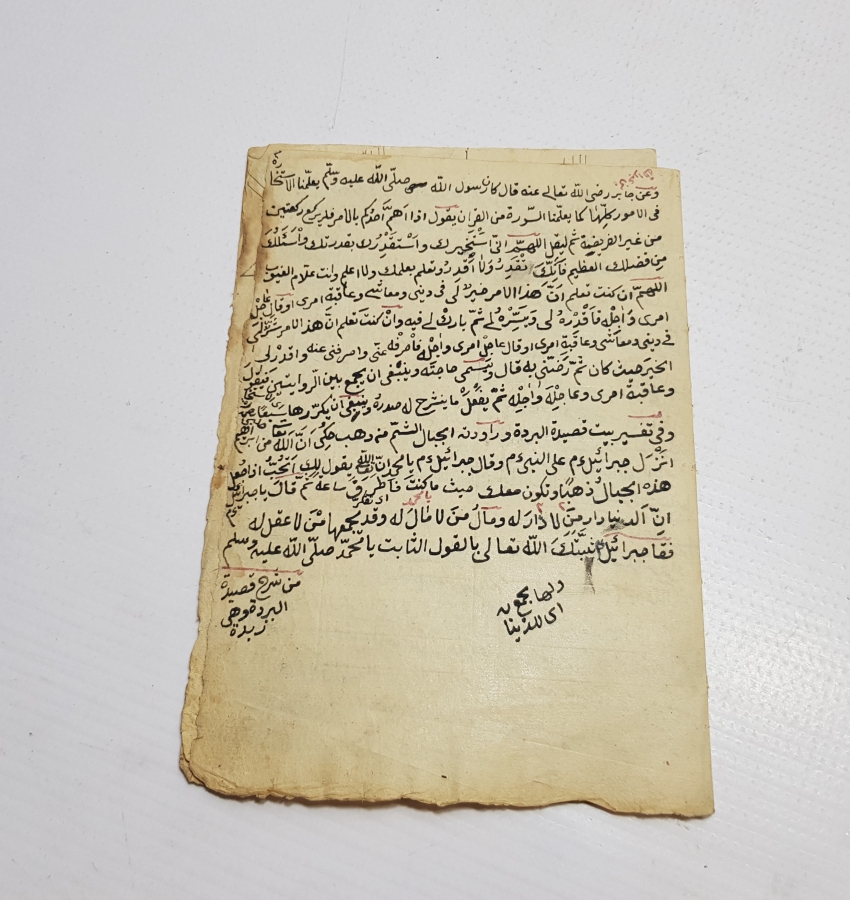 وعن جابر رضى الله تعالى عنه قال كان رسول الله صلّى الله عليه وسلّم يعلّمنا الاستخارة
فى الامور كلّها كما يعلّمنا السّورة من القران يقول اذا اهمّ احدكم بالامر فليركع ركعتين
من غير الفريضة ثم ليقل اللهمّ انّى استخيرك واستقدرك بقدرتك واسئلك
من فضلك العظيم فانّك تقدر ولا اقدر وتعلم بعلمك ولا اعلم وانت علّام الغيوب
اللهمّ ان كنت تعلم انّ هذا الامر خير لى فى دينى ومعاشى وعاقبة امرى اوقال عاجل
امرى واجله فاقدره لى ويسّره لى ثمّ بارك لى فيه وان كنت تعلم انّ هذا الامر شرّ لى
فى دينى ومعاشى وعاقبة امرى اوقال عاجل امرى واجله فاصرفه عنّى واصرفنى عنه واقدر لى
الخير حيث كان ثمّ رضّنى به قال ويسمّى حاجته وينبغى ان يجمع بين الرّوايتين فيقول
وعاقبة امرى وعاجله واجله ثمّ يفعل ما ينشرح له صدره وينبغى ان يكرّرها سبعا
وفى تفسير بيت قصيدة البردة وراودته الجبال الشّم من ذهب حكى انّ الله تعالى
انزل جبرائيل ءم على النبى ءم وقال جبرائيل ءم يا محمد انّ الله تعالى يقول لك اتحبّ ان اجعل
هذه الجبال ذهبا وتكون معك حيث ما كنت فاطرق ساعة ثمّ قال يا جبرائيل
اى تفكّر
يا محمد
انّ الدنيا دار من لا دار له ومال من لا مال له وقد يجمعها من لا عقل له
فقا جبرائيل ثبّتك الله تعالى بالقول الثابت يا محمّد صلّى الله عليه وسلم
ولها يجمعون
اى للدنيا
من شرح قصيدة
البردة وهى
زبدة